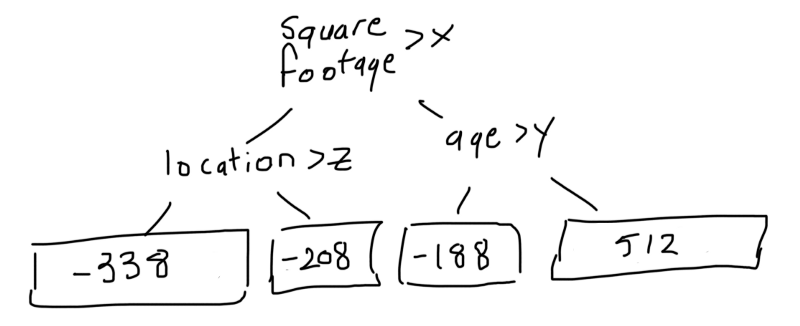 Square
footage >X
location >Z
age >Y
-338
-208
-188
512